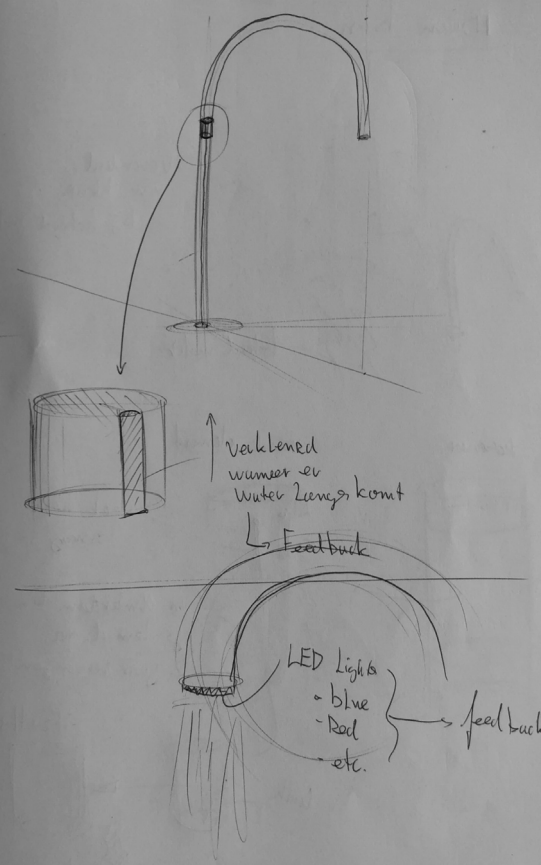 verkleurd
wanneer er
water langs komt
Feedback
LED Lights
- blue
- Red
- etc.
feedback